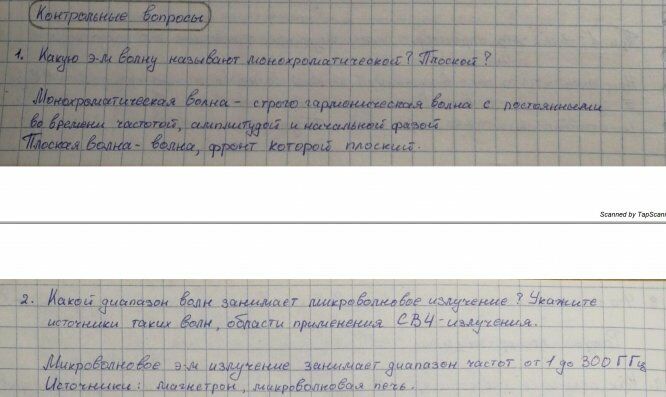 Контрольные вопросы
1. Какую э-м волну называют монохроматической? Плоской?
Монохроматическая волна - строго гармоническая волна с постоянными
во времени частотой, амплитудой и начальной фазой
Плоская волна - волна, фронт которой плоский.
Scanned by TapScan
2. Какой диапазон волн занимает микроволновое излучение? Укажите
источники таких волн, области применения СВЧ-излучения.
Микроволновое э-м излучение занимает диапазон частот от 1 до 300 ГГц
Источники: магнетрон, микроволновая печь.